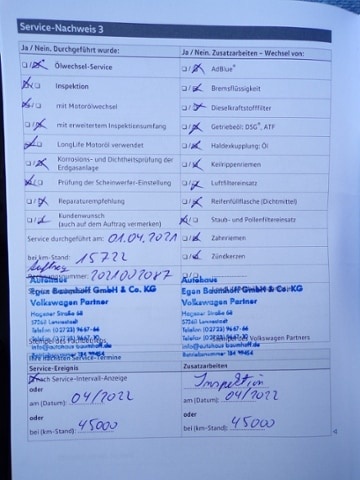 Service-Nachweis 3
Ja / Nein. Durchgeführt wurde:
Ja / Nein. Zusatzarbeiten – Wechsel von:
Ölwechsel-Service
AdBlue®
Inspektion
Bremsflüssigkeit
mit Motorölwechsel
Dieselkraftstofffilter
mit erweitertem Inspektionsumfang
Getriebeöl: DSG®, ATF
LongLife Motoröl verwendet
Haldexkupplung: Öl
Korrosions- und Dichtheitsprüfung der
Erdgasanlage
Keilrippenriemen
Prüfung der Scheinwerfer-Einstellung
Luftfiltereinsatz
Reparaturempfehlung
Reifenfüllflasche (Dichtmittel)
Kundenwunsch
(auch auf dem Auftrag vermerken)
Staub- und Pollenfiltereinsatz
Service durchgeführt am: 01.04.2021
Zahnriemen
bei (km-Stand): 15722
Zündkerzen
Autohaus
Egen Baumhoff GmbH & Co. KG
Volkswagen Partner
Hagener Straße 68
57368 Lennestadt
Autohaus
Egen Baumhoff GmbH & Co. KG
Volkswagen Partner
Hagener Straße 68
57368 Lennestadt
Ihre nächsten Service-Termine
Service-Ereignis
Zusatzarbeiten
nach Service-Intervall-Anzeige
Inspektion
oder
am (Datum): 04/2022
am (Datum): 04/2022
oder
oder
bei (km-Stand): 45000
bei (km-Stand): 45000